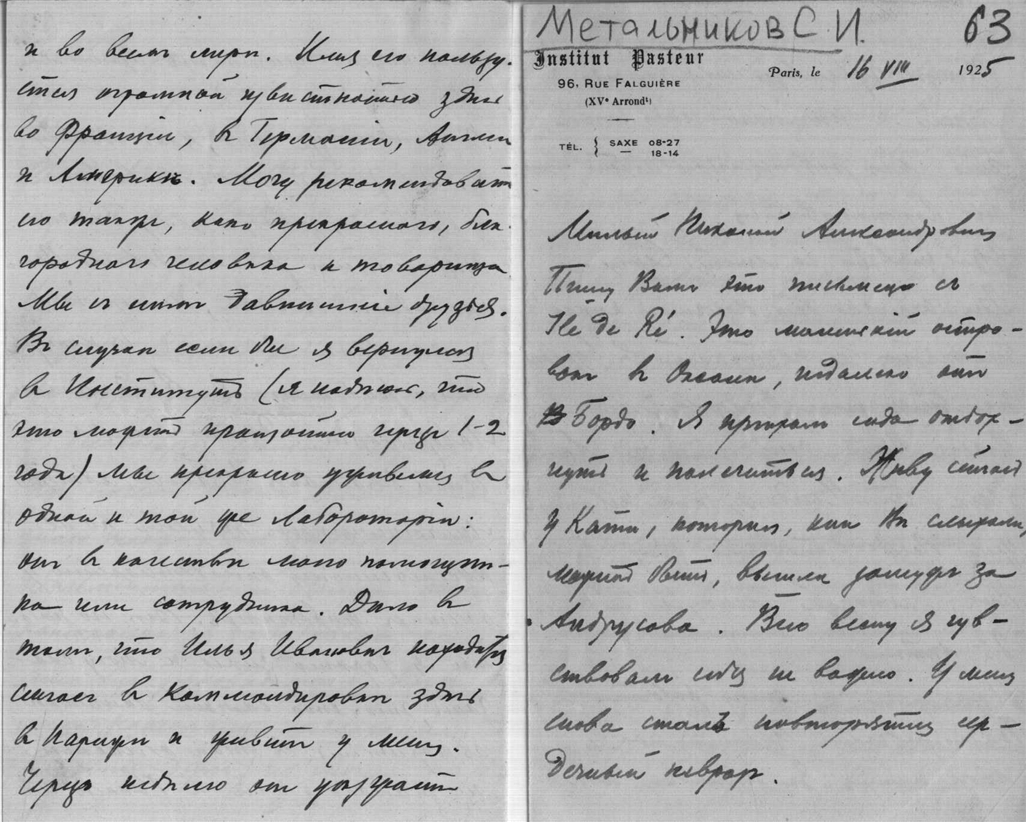 и во всемъ мирѣ. Имя его пользу-
ется огромной извѣстностью здѣсь
во Франціи, въ Германіи, Англіи
и Америкѣ. Могу рекомендовать
его также, какъ прекраснаго, бла-
городнаго человѣка и товарища
Мы съ нимъ давнишніе друзья.
Въ случаѣ если бы я вернулся
въ Институтъ (я надѣюсь, что
это можетъ произойти черезъ 1-2
года) мы прекрасно уживемся въ
одной и той же Лабораторіи:
онъ въ качествѣ моего помощни-
ка или сотрудника. Дѣло въ
томъ, что Илья Ивановичъ находится
сейчасъ въ Коммандировкѣ здѣсь
въ Парижѣ и живетъ у меня.
Черезъ недѣлю онъ уѣзжаетъ
Метальников С. И.
63
Institut Pasteur
96, RUE FALGUIÈRE
(XVe Arrondt)
TÉL. { SAXE 08-27
— 18-14
Paris, le 16 VIII 1925
Милый Николай Александровичъ
Пишу Вамъ это письмецо съ
Ile de Ré. Это маленькій остро-
вокъ въ Океанѣ, недалеко отъ
Бордо. Я пріѣхалъ сюда отдох-
нуть и полечиться. Живу сейчасъ
у Кати, которая, какъ Вы слыхали,
можетъ быть, вышла замужъ за
Андрусова. Всю весну я чув-
ствовалъ себя не важно. У меня
снова сталъ повторяться сер-
дечный неврозъ.